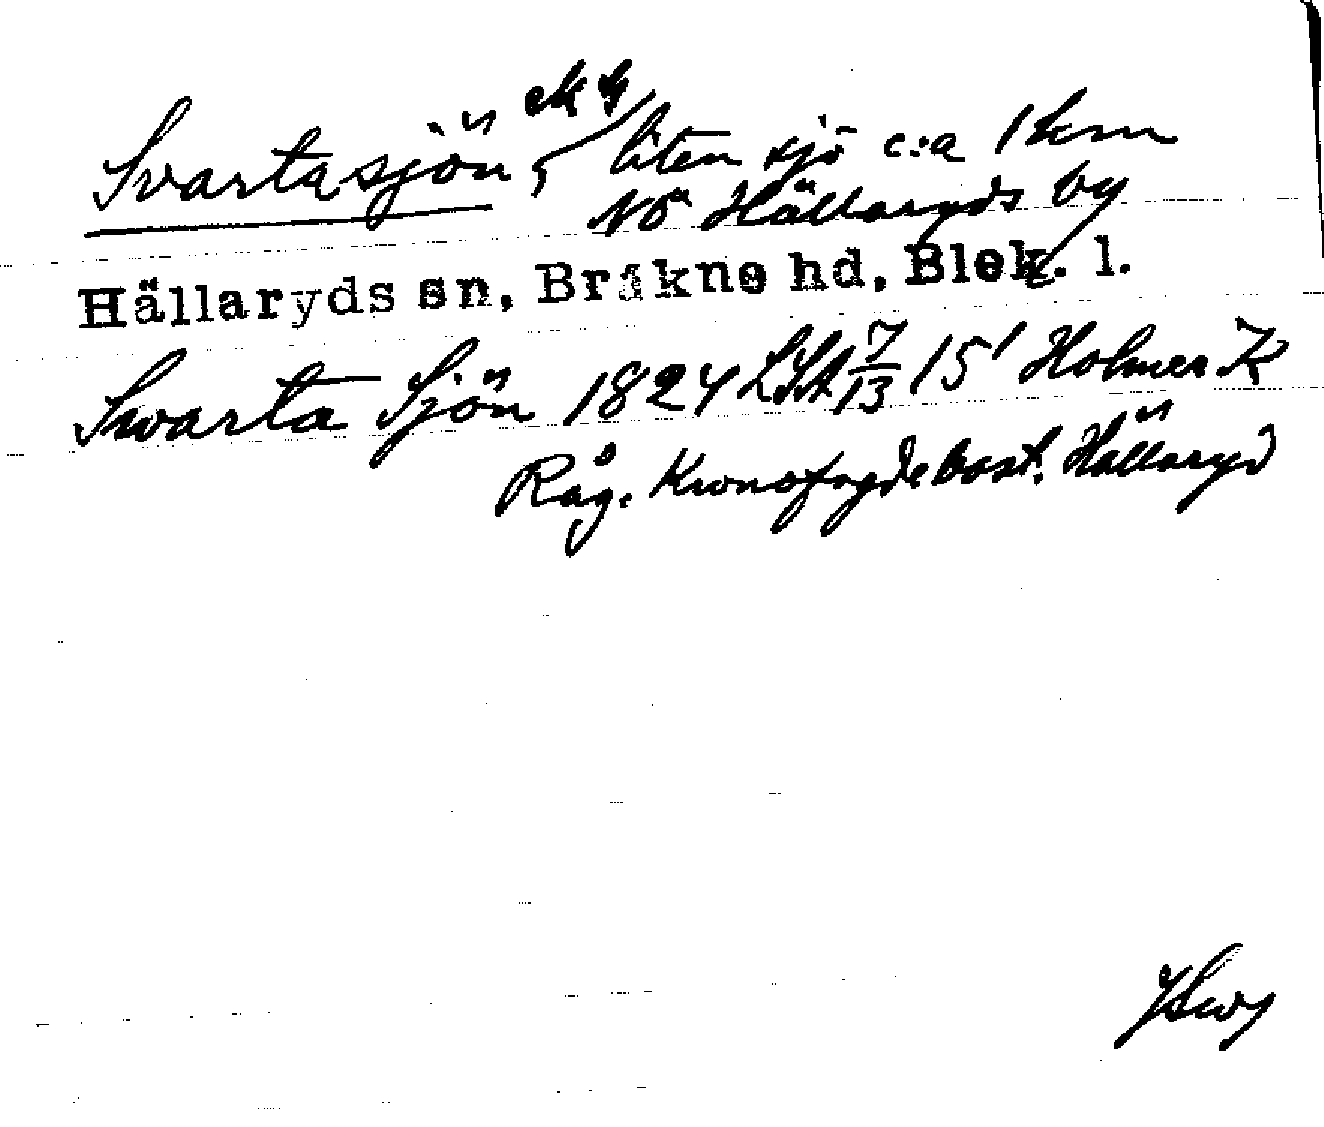 Svartasjön, ek 4 liten sjö c:a 1 km
NÖ Hällaryds by
Hällaryds sn, Bräkne hd, Blek. l.
Swarta Sjön 1824 LSA 7/13 15' Holmer K
Råg. Kronofogdebost. Hällaryd